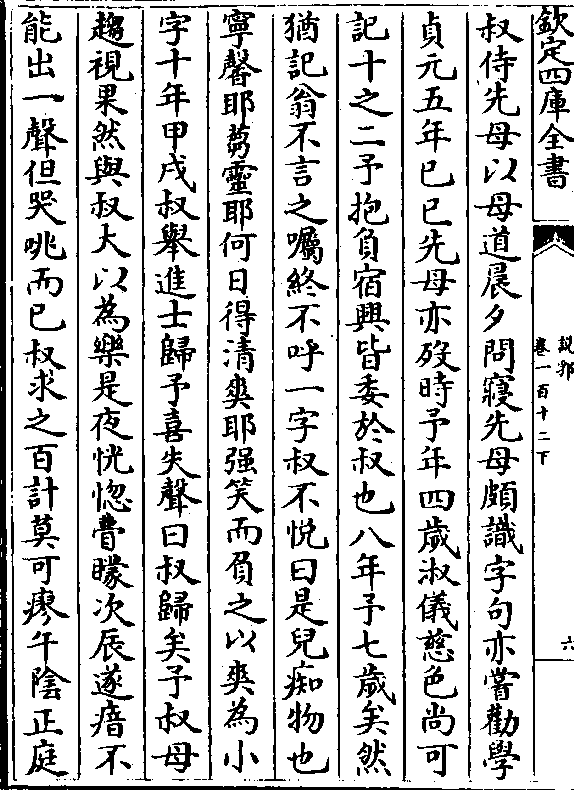 欽定四庫全書
說郛
卷一百十二下
六
叔侍先母以母道晨夕問寢先母頗識字句亦嘗勸學
貞元五年已已先母亦歿時予年四歲淑儀慈色尚可
記十之二予抱負宿興皆委於叔也八年予七歲矣然
猶記翁不言之囑終不呼一字叔不悦曰是兒痴物也
寧馨耶芻靈耶何日得清爽耶强笑而負之以爽為小
字十年甲戌叔舉進士歸予喜失聲曰叔歸矣予叔母
趨視果然與叔大以為樂是夜恍惚瞢矇次辰遂瘖不
能出一聲但哭咷而已叔求之百計莫可瘳午陰正庭